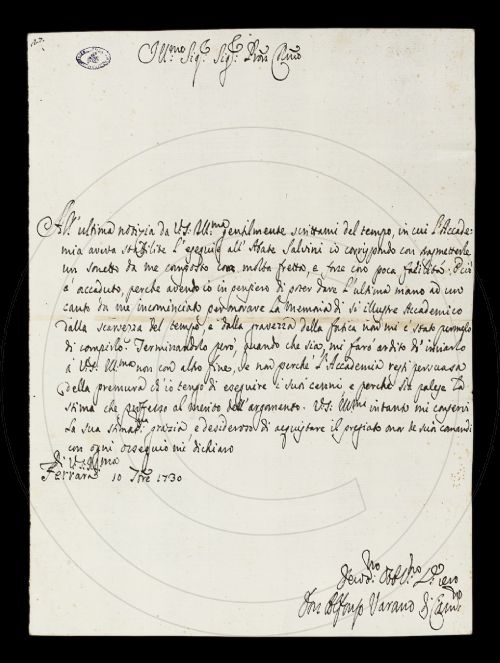 Ill.mo Sig.r Sig.r Pron Col.mo
All' ultima notizia da V.S. Ill.ma gentilmente scrittami del tempo, in cui l'Accade-
mia aveva stabilite l'esequie all' Abate Salvini io corrispondo con trasmetterle
un sonetto da me composto con molta fretta, e forse con poca felicità. Ciò
è accaduto, perchè avendo io in pensiero di poter dare l'ultima mano ad un
canto da me incominciato per onorare la memoria di sì illustre Accademico
dalla scarsezza del tempo, e dalla gravezza della fatica non mi è stato permesso
di compirlo. Terminandolo però, quando che sia, mi farò ardito di inviarlo
a V.S. Ill.ma non con altro fine, se non perchè l'Accademia resti persuasa
della premura ch'io tengo di eseguire i suoi cenni e perchè sia palese la
stima che professo al merito dell'argomento. V.S. Ill.ma intanto mi conservi
la sua stimat.ma grazia e desideroso di acquistare il pregiato onor de suoi comandi
con ogni ossequio mi dichiaro
Di V.S. Ill.ma
Ferrara 10 1730
Devo.mo Obb.mo
Don Alfonso Varano di Cam.o